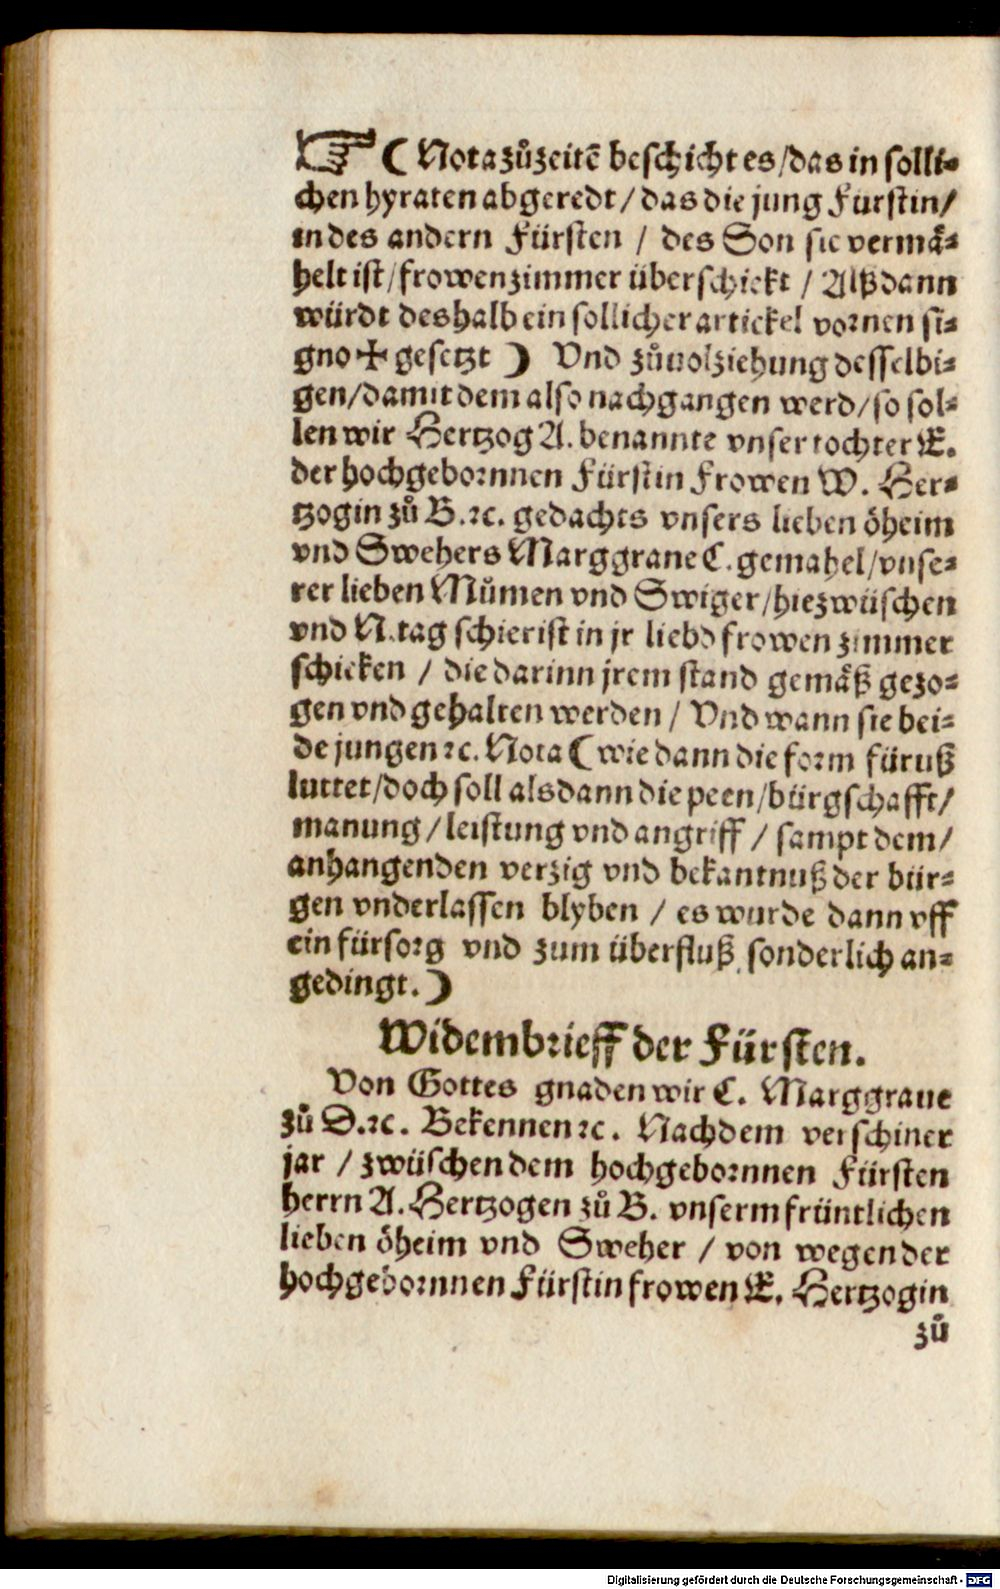 ☞ ( Nota zůzeitē beschicht es / das in solli⸗
chen hyraten abgeredt / das die jung Fürstin /
in des andern Fürsten / des Son sie vermä⸗
helt ist / frowenzimmer überschickt / Alßdann
würdt deshalb ein sollicher artickel vornen si⸗
gno ✢ gesetzt ) Vnd zůuolziehung desselbi⸗
gen / damit dem also nachgangen werd / so sol⸗
len wir Hertzog A. benannte vnser tochter E.
der hochgebornnen Fürstin Frowen W. Her⸗
tzogin zů B. ꝛc. gedachts vnsers lieben öheim
vnd Swehers Marggraue C. gemahel / vnse⸗
rer lieben Můmen vnd Swiger / hiezwüschen
vnd N. tag schierist in jr liebd frowen zimmer
schicken / die darinn jrem stand gemäß gezo⸗
gen vnd gehalten werden / Vnd wann sie bei⸗
de jungen ꝛc. Nota ( wie dann die form füruß
luttet / doch soll alsdann die peen / bürgschafft /
manung / leistung vnd angriff / sampt dem /
anhangenden verzig vnd bekantnuß der bür⸗
gen vnderlassen blyben / es wurde dann vff
ein fürsorg vnd zum überfluß sonderlich an⸗
gedingt. )
Widembrieff der Fürsten.
Von Gottes gnaden wir C. Marggraue
zů D. ꝛc. Bekennen ꝛc. Nachdem verschiner
jar / zwüschen dem hochgebornnen Fürsten
herrn A. Hertzogen zů B. vnserm früntlichen
lieben öheim vnd Sweher / von wegen der
hochgebornnen Fürstin frowen E. Hertzogin
zů
Digitalisierung gefördert durch die Deutsche Forschungsgemeinschaft - DFG